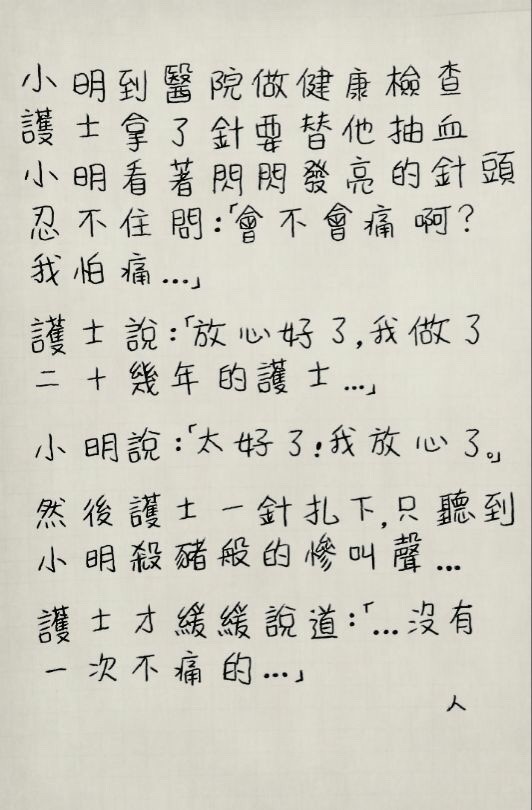 小明到醫院做健康檢查
護士拿了針要替他抽血
小明看著閃閃發亮的針頭
忍不住問:「會不會痛啊?
我怕痛...」
護士說:「放心好了,我做了
二十幾年的護士...」
小明說:「太好了!我放心了。」
然後護士一針扎下,只聽到
小明殺豬般的慘叫聲...
護士才緩緩說道:「...沒有
一次不痛的...」
人